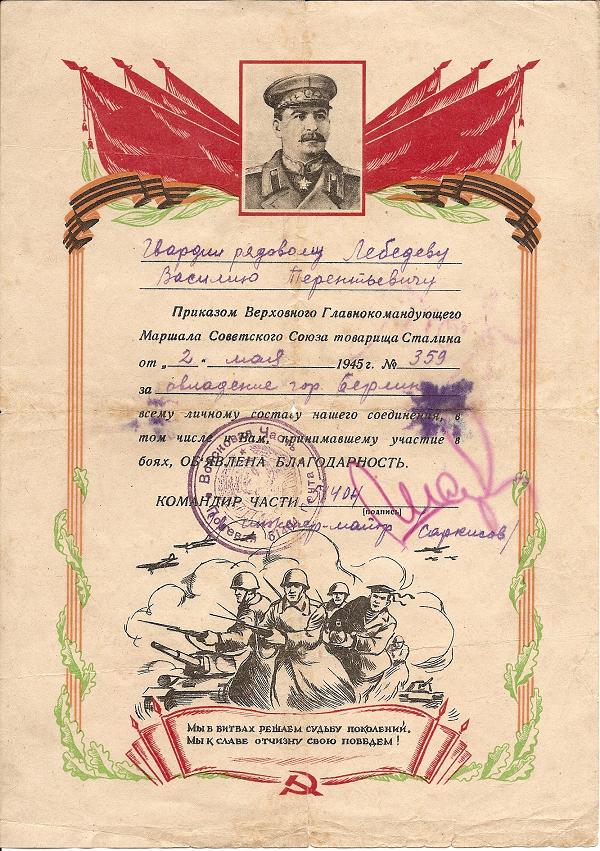 Гвардии рядовому Лебедеву
Василию Терентьевичу
Приказом Верховного Главнокомандующего
Маршала Советского Союза товарища Сталина
от „2“ мая 1945 г. № 359
за овладение гор. Берлин
всему личному составу нашего соединения, в
том числе и Вам, принимавшему участие в
боях, ОБ'ЯВЛЕНА БЛАГОДАРНОСТЬ.
КОМАНДИР ЧАСТИ
(подпись)
инженер-майор Саркисов/
Войсковая Часть
Полевая Почта
МЫ В БИТВАХ РЕШАЕМ СУДЬБУ ПОКОЛЕНИЙ,
МЫ К СЛАВЕ ОТЧИЗНУ СВОЮ ПОВЕДЕМ!